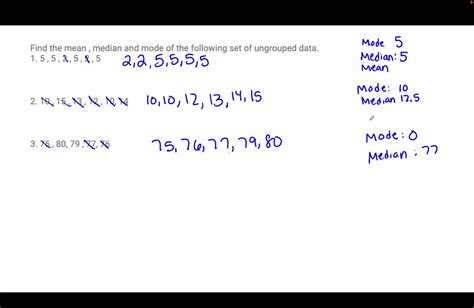 Find the mean , median and mode of the following set of ungrouped data.
1. 5 , 5 , 2 , 5 , 2 , 5 2,2,5,5,5,5
2. 10, 15, 13, 12, 10, 14 10,10, 12, 13, 14, 15
3. 75, 80, 79 , 77, 76 75, 76, 77, 79, 80
Mode 5
Median: 5
Mean
Mode: 10
Median 12.5
Mode: 0
Median : 77